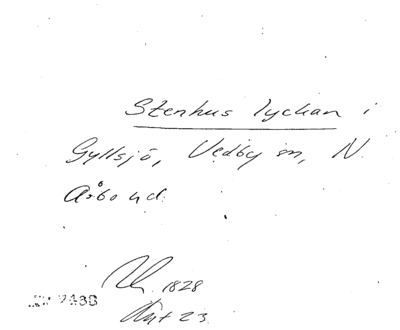 Stenhus lyckan i
Gyllsjö, Vedby sn, N.
Åsbo hd.
1828